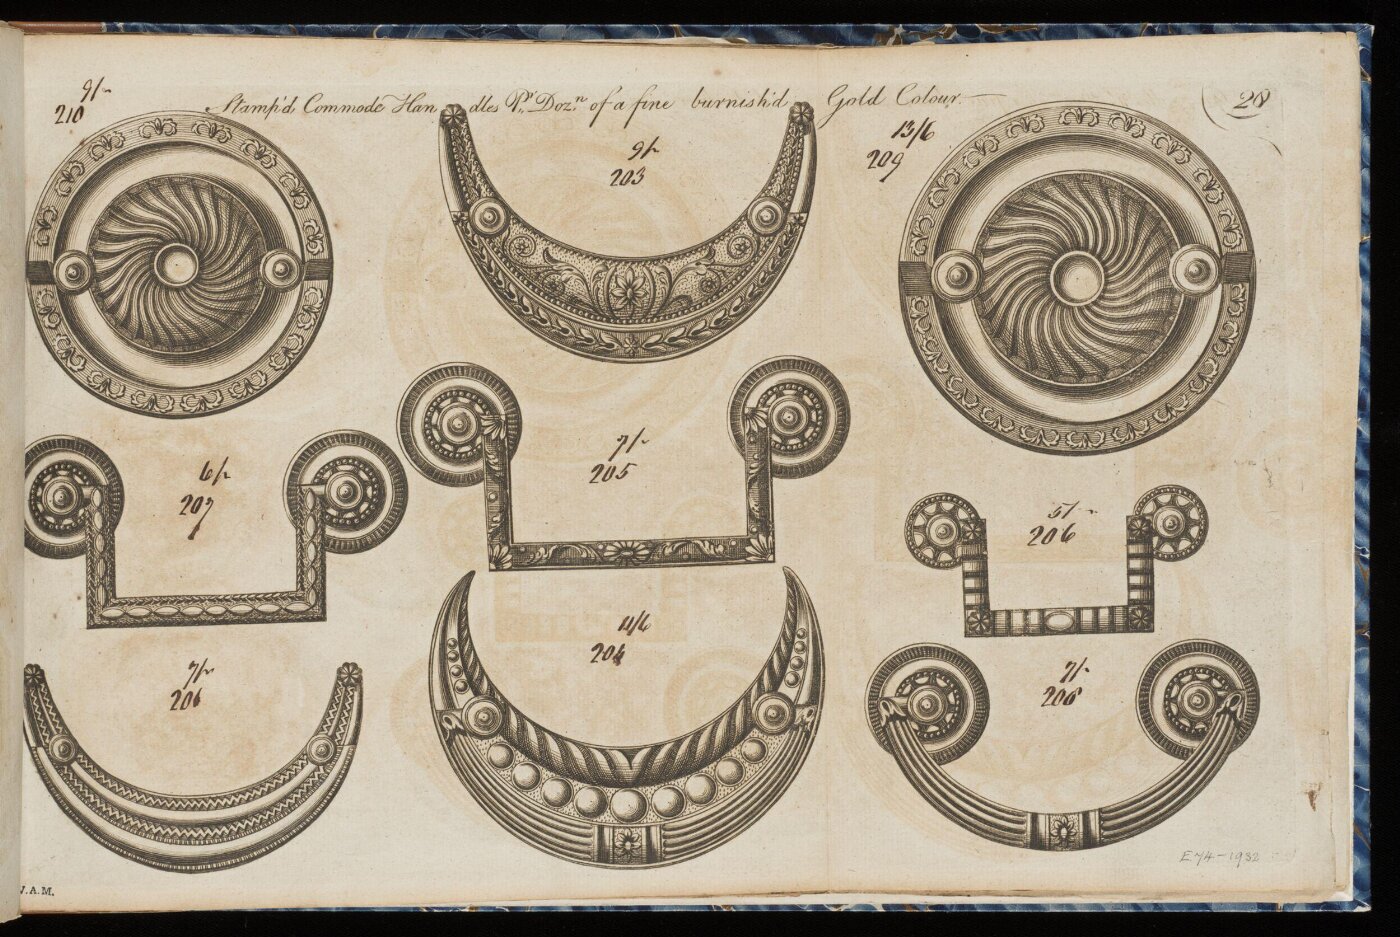 9/-
210
Stamp'd Commode Handles Pr. Dozn. of a fine burnish'd Gold Colour.
20
9/-
203
13/6
209
6/-
207
7/-
205
5/-
206
7/-
206
11/6
204
7/-
208
E.74-1932
V.A.M.